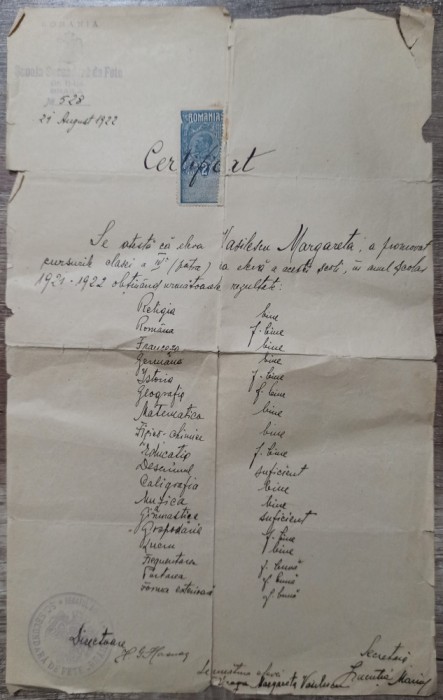 ROMANIA
No 528
21 August 1922
ROMANIA
Certificat
Se atestă că eleva Vasilescu Margareta, a promovat
cursurile clasei a IV (patra) ca elevă a acestei școli, în anul școlar
1921-1922 obținând următoarele rezultate:
Religia bine
Româna f. bine
Franceza bine
Germana bine
Istoria f. bine
Geografie f. bine
Matematica bine
Fizico-chimice bine
Educație f. bine
Desemnul suficient
Caligrafia bine
Muzica bine
Gimnastice suficient
Gospodărie f. bine
Lucru bine
Frequentarea f. bună
Purtarea f. bună
Forma exterioară f. bună
Directoare
Secretară
Semnătura eleva
Margareta Vasilescu